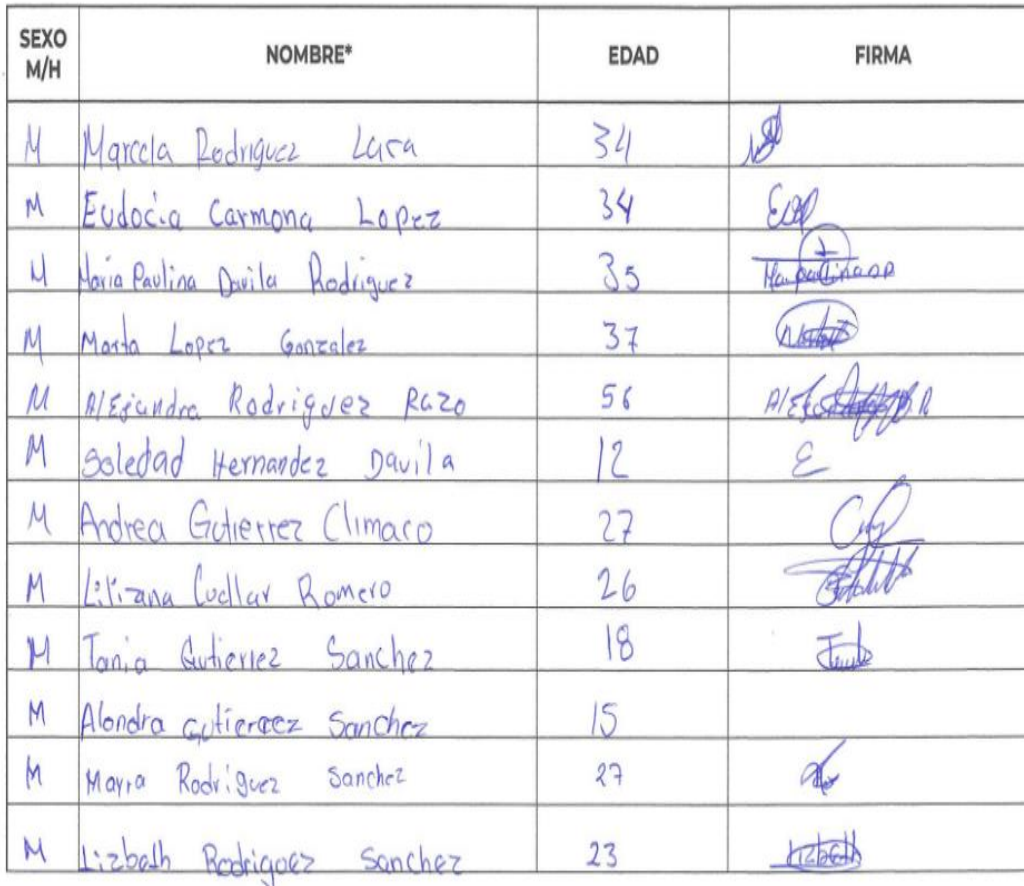 SEXO M/H NOMBRE* EDAD FIRMA
M Marcela Rodriguez Lara 34
M Eudocia Carmona Lopez 34
M Maria Paulina Davila Rodriguez 35
M Marta Lopez Gonzalez 37
M Alejandra Rodriguez Razo 56
M Soledad Hernandez Davila 12 E
M Andrea Gutierrez Climaco 27
M Cuellar Romero 26
M Tania Gutierrez Sanchez 18
M Alondra Gutierrez Sanchez 15
M Mayra Rodriguez Sanchez 27
M Lizbath Rodriguez Sanchez 23 Lizbeth